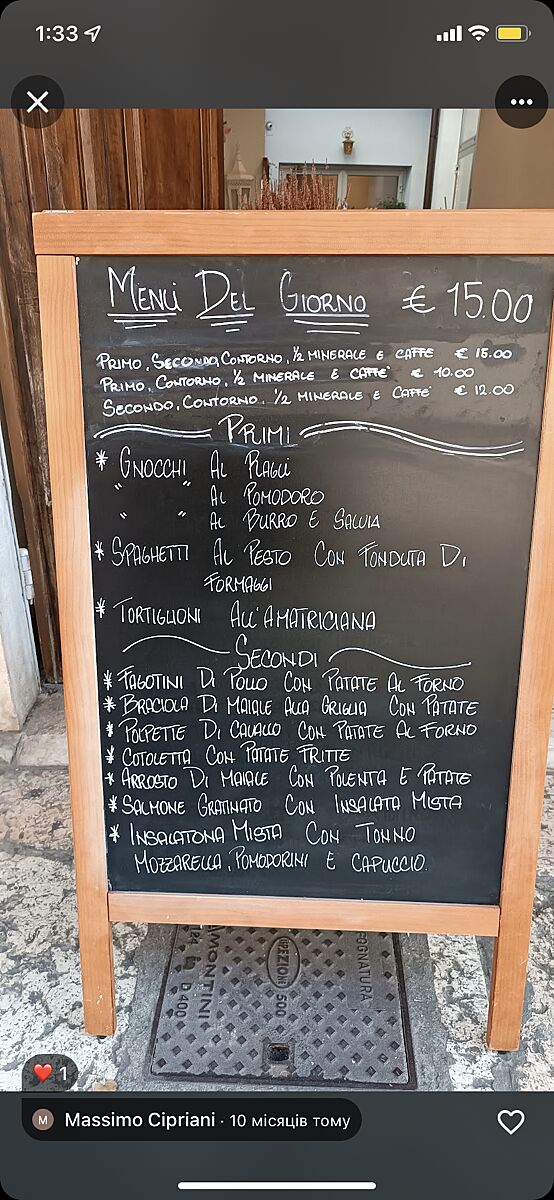 1:33
Menù Del Giorno € 15.00
Primo, Secondo, Contorno, 1/2 minerale e caffe € 15.00
Primo, Contorno, 1/2 minerale e caffe' € 10.00
Secondo, Contorno, 1/2 minerale e caffe' € 12.00
Primi
* Gnocchi Al Ragù
" " Al Pomodoro
" " Al Burro E Salvia
* Spaghetti Al Pesto Con Fonduta Di
Formaggi
* Tortiglioni All'Amatriciana
Secondi
* Fagotini Di Pollo Con Patate Al Forno
* Braciola Di Maiale Alla Griglia Con Patate
* Polpette Di Cavallo Con Patate Al Forno
* Cotoletta Con Patate Fritte
* Arrosto Di Maiale Con Polenta E Patate
* Salmone Gratinato Con Insalata Mista
* Insalatona Mista Con Tonno
Mozzarella, Pomodorini E Capuccio.
D400
500
1
M Massimo Cipriani · 10 місяців тому